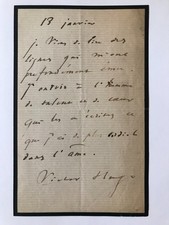 13 janvier
je viens de lire des
lignes qui m'ont
profondément ému.
J'envoie à l'homme
de talent et de cœur
qui les a écrites ce
que j'ai de plus
dans l'âme.
Victor Hugo